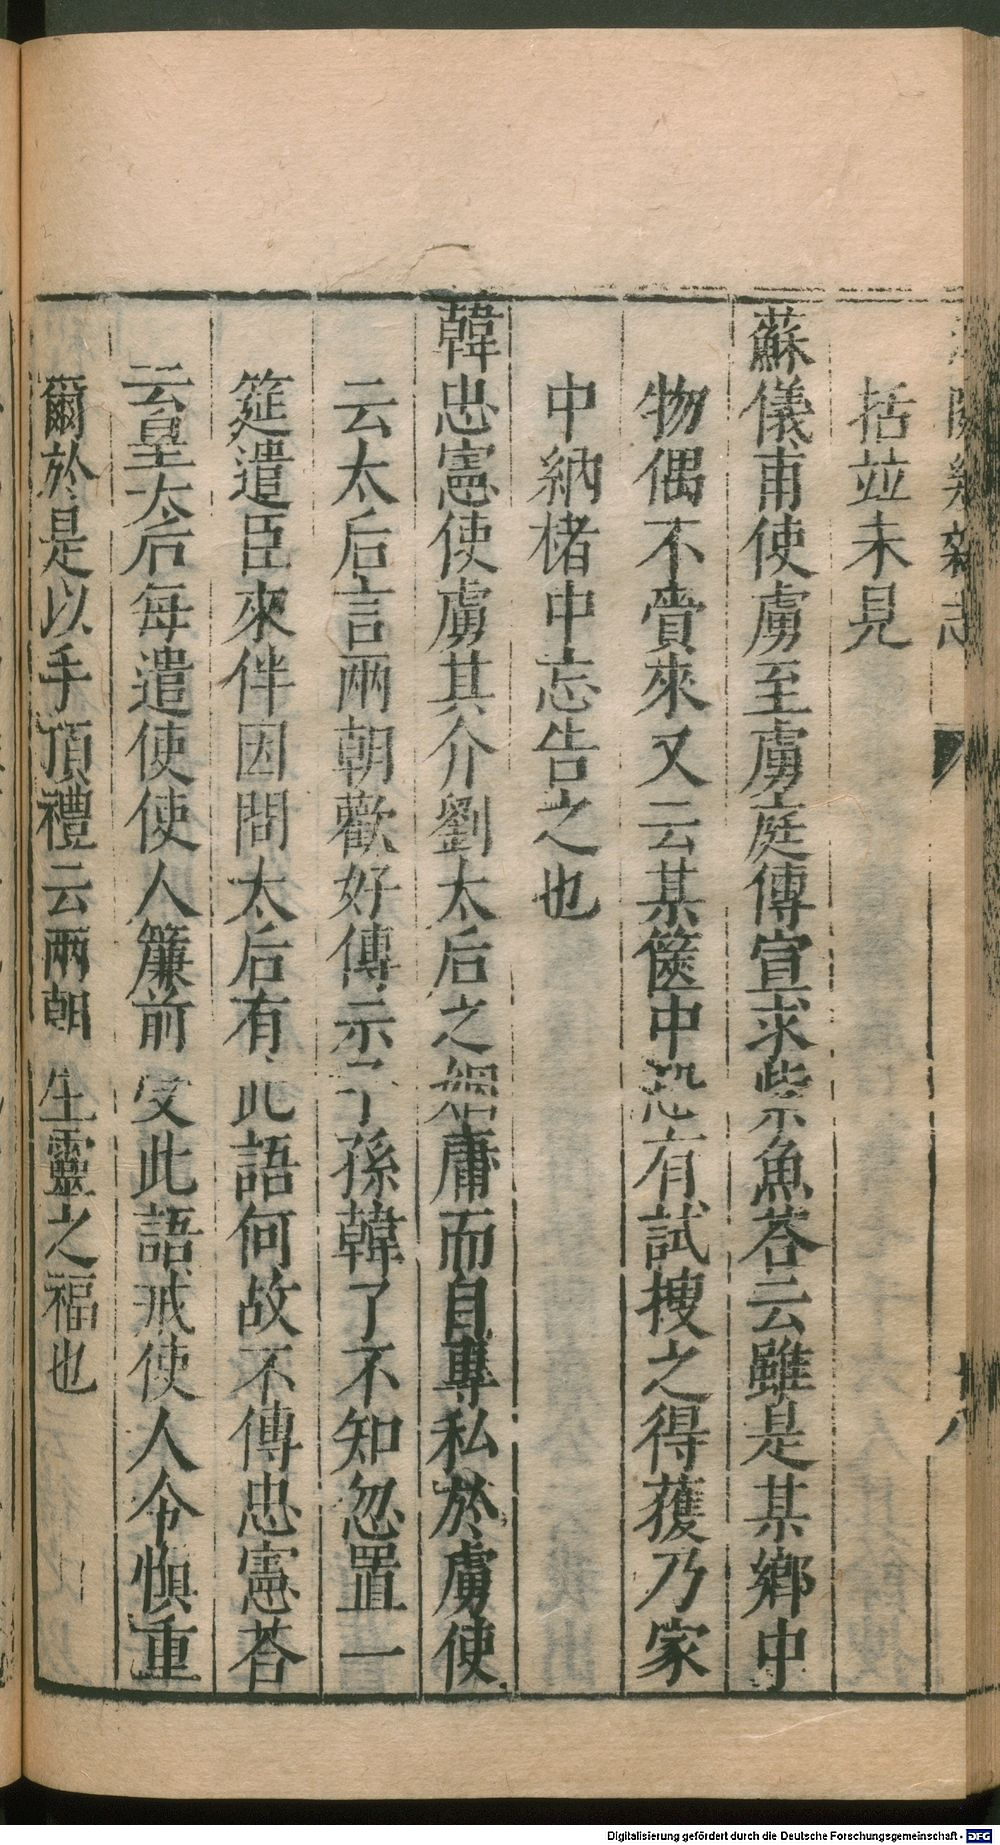 括並未見
蘇儀甫使虜至虜庭傳宣求紫魚荅云雖是某鄉中
物偶不賫來又云某篋中恐有試搜之得獲乃家
中納楮中忘告之也
韓忠憲使虜其介劉太后之姻庸而自專私於虜使
云太后言兩朝歡好傳示子孫韓了不知忽置一
筵遣臣來伴因問太后有此語何故不傳忠憲荅
云皇太后每遣使使人簾前受此語戒使人令愼重
爾於是以手頂禮云兩朝生靈之福也
Digitalisierung gefördert durch die Deutsche Forschungsgemeinschaft - DFG